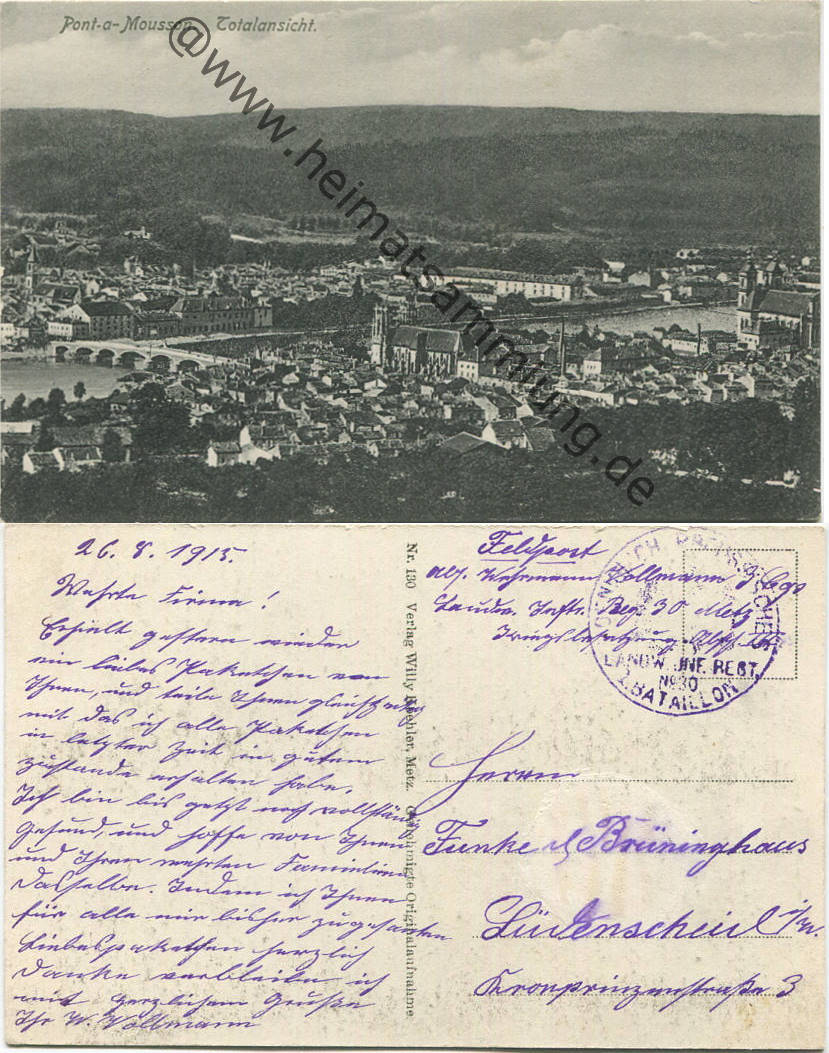 Pont-a-Mousson, Totalansicht.
@www.heimatsammlung.de
26. 8. 1915.
Werte Firma!
Erhielt gestern wieder
ein liebes Paketchen von
Ihnen, und teile Ihnen gleichzeitig
mit das ich alle Paketchen
in letzter Zeit in gutem
zustande erhalten habe.
Ich bin bis jetzt noch vollständig
Gesund, und hoffe von Ihnen
und Ihren werten Familien
dasselbe. Indem ich Ihnen
für alle mir bisher zugesanten
Liebespaketchen herzlich
danke verbleibe ich
mit herzlichem Gruße
Ihr W. Vollmann
Nr. 130 Verlag Willy Koehler, Metz. Genehmigte Originalaufnahme
Feldpost
Abs. Wehrmann Vollmann 3 Cop
Landw. Inftr. Reg. 30 Metz
KÖNIGLICH PREUSSISCHES
LANDW. INF. REGT.
No 30
BATAILLON
Herrn
Funke & Brüninghaus
Lüdenscheid i/W.
Kronprinzenstraße 3